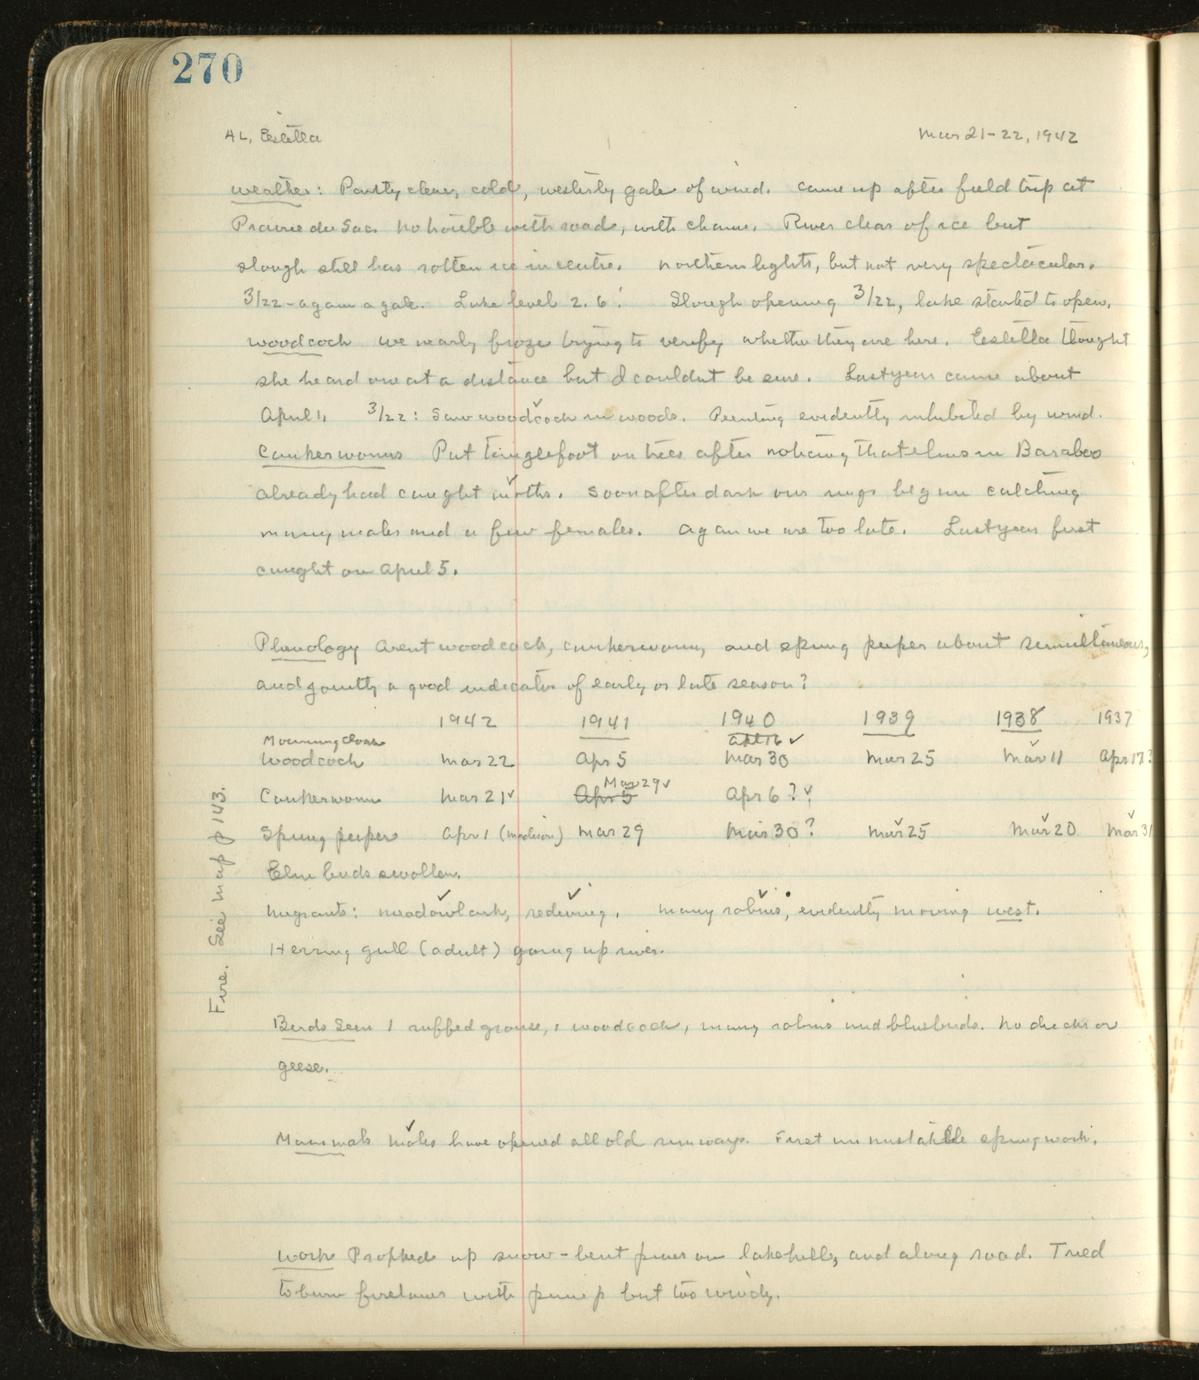 270
AL, Estella Mar 21-22, 1942
Weather: Partly clear, cold, westerly gale of wind. Came up after field trip at
Prairie du Sac. No trouble with roads, with chains. River clear of ice but
slough still has rotten ice in centre. Northern lights, but not very spectacular.
3/22 - again a gale. Lake level 2.6'. Slough opening 3/22, lake started to open.
Woodcock We nearly froze trying to verify whether they are here. Estella thought
she heard one at a distance but I couldnt be sure. Last year came about
April 1. 3/22: Saw woodcock in woods. Peenting evidently inhibited by wind.
Cankerworms Put tanglefoot on trees after noticing that elms in Baraboo
already had caught moths. Soon after dark our rings began catching
many males and a few females. Again we are too late. Last year first
caught on April 5.
Phenology Arent woodcock, cankerworm, and spring peeper about simultaneous,
and jointly a good indicator of early or late season?
1942 1941 1940 1939 1938 1937
Mourning dove
Woodcock Mar 22 Apr 5 Mar 30 Mar 25 Mar 11 Apr 17?
Mar 29
Cankerworm Mar 21 Apr 5 Apr 6?
Spring peeper Apr 1 (Madison) Mar 29 Mar 30? Mar 25 Mar 20 Mar 31
Elm buds swollen.
Migrants: meadowlark, redwing. Many robins, evidently moving west.
Herring gull (adult) going up river.
Fire. See Map p 143.
Birds Seen 1 ruffed grouse, 1 woodcock, many robins and bluebirds. No ducks or
geese.
Mammals Moles have opened all old runways. First unmistakable spring work.
Work Propped up snow-bent pines on lakehill, and along road. Tried
to burn firelanes with pump but too windy.